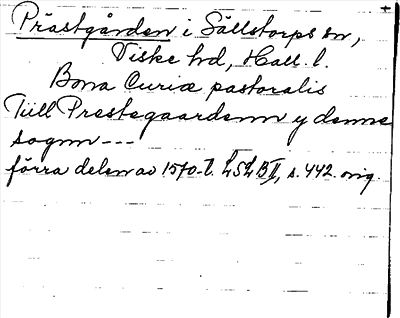 Prästgården i Sällstorps sn,
Viske hd, Hall. l.
Bona Curiæ pastoralis
Tiill Prestegaardenn y denne
sognn ---
förra delen av 1570-t. LSLB II, s. 442. orig.